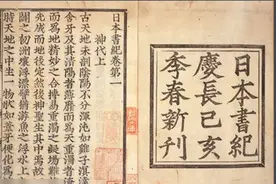 日本書紀
慶長己亥
季春新刊
日本書紀卷第一
神代上
古天地未剖陰陽不分渾沌如雞子溟涬
含牙及其清陽者薄靡而爲天重濁者淹
而爲地精妙之合搏易重濁之凝竭難
先成而地後定然後神聖生其中焉故
闢之初洲壤浮漂譬猶游魚之浮水上
時天地之中生一物狀如葦牙便化爲